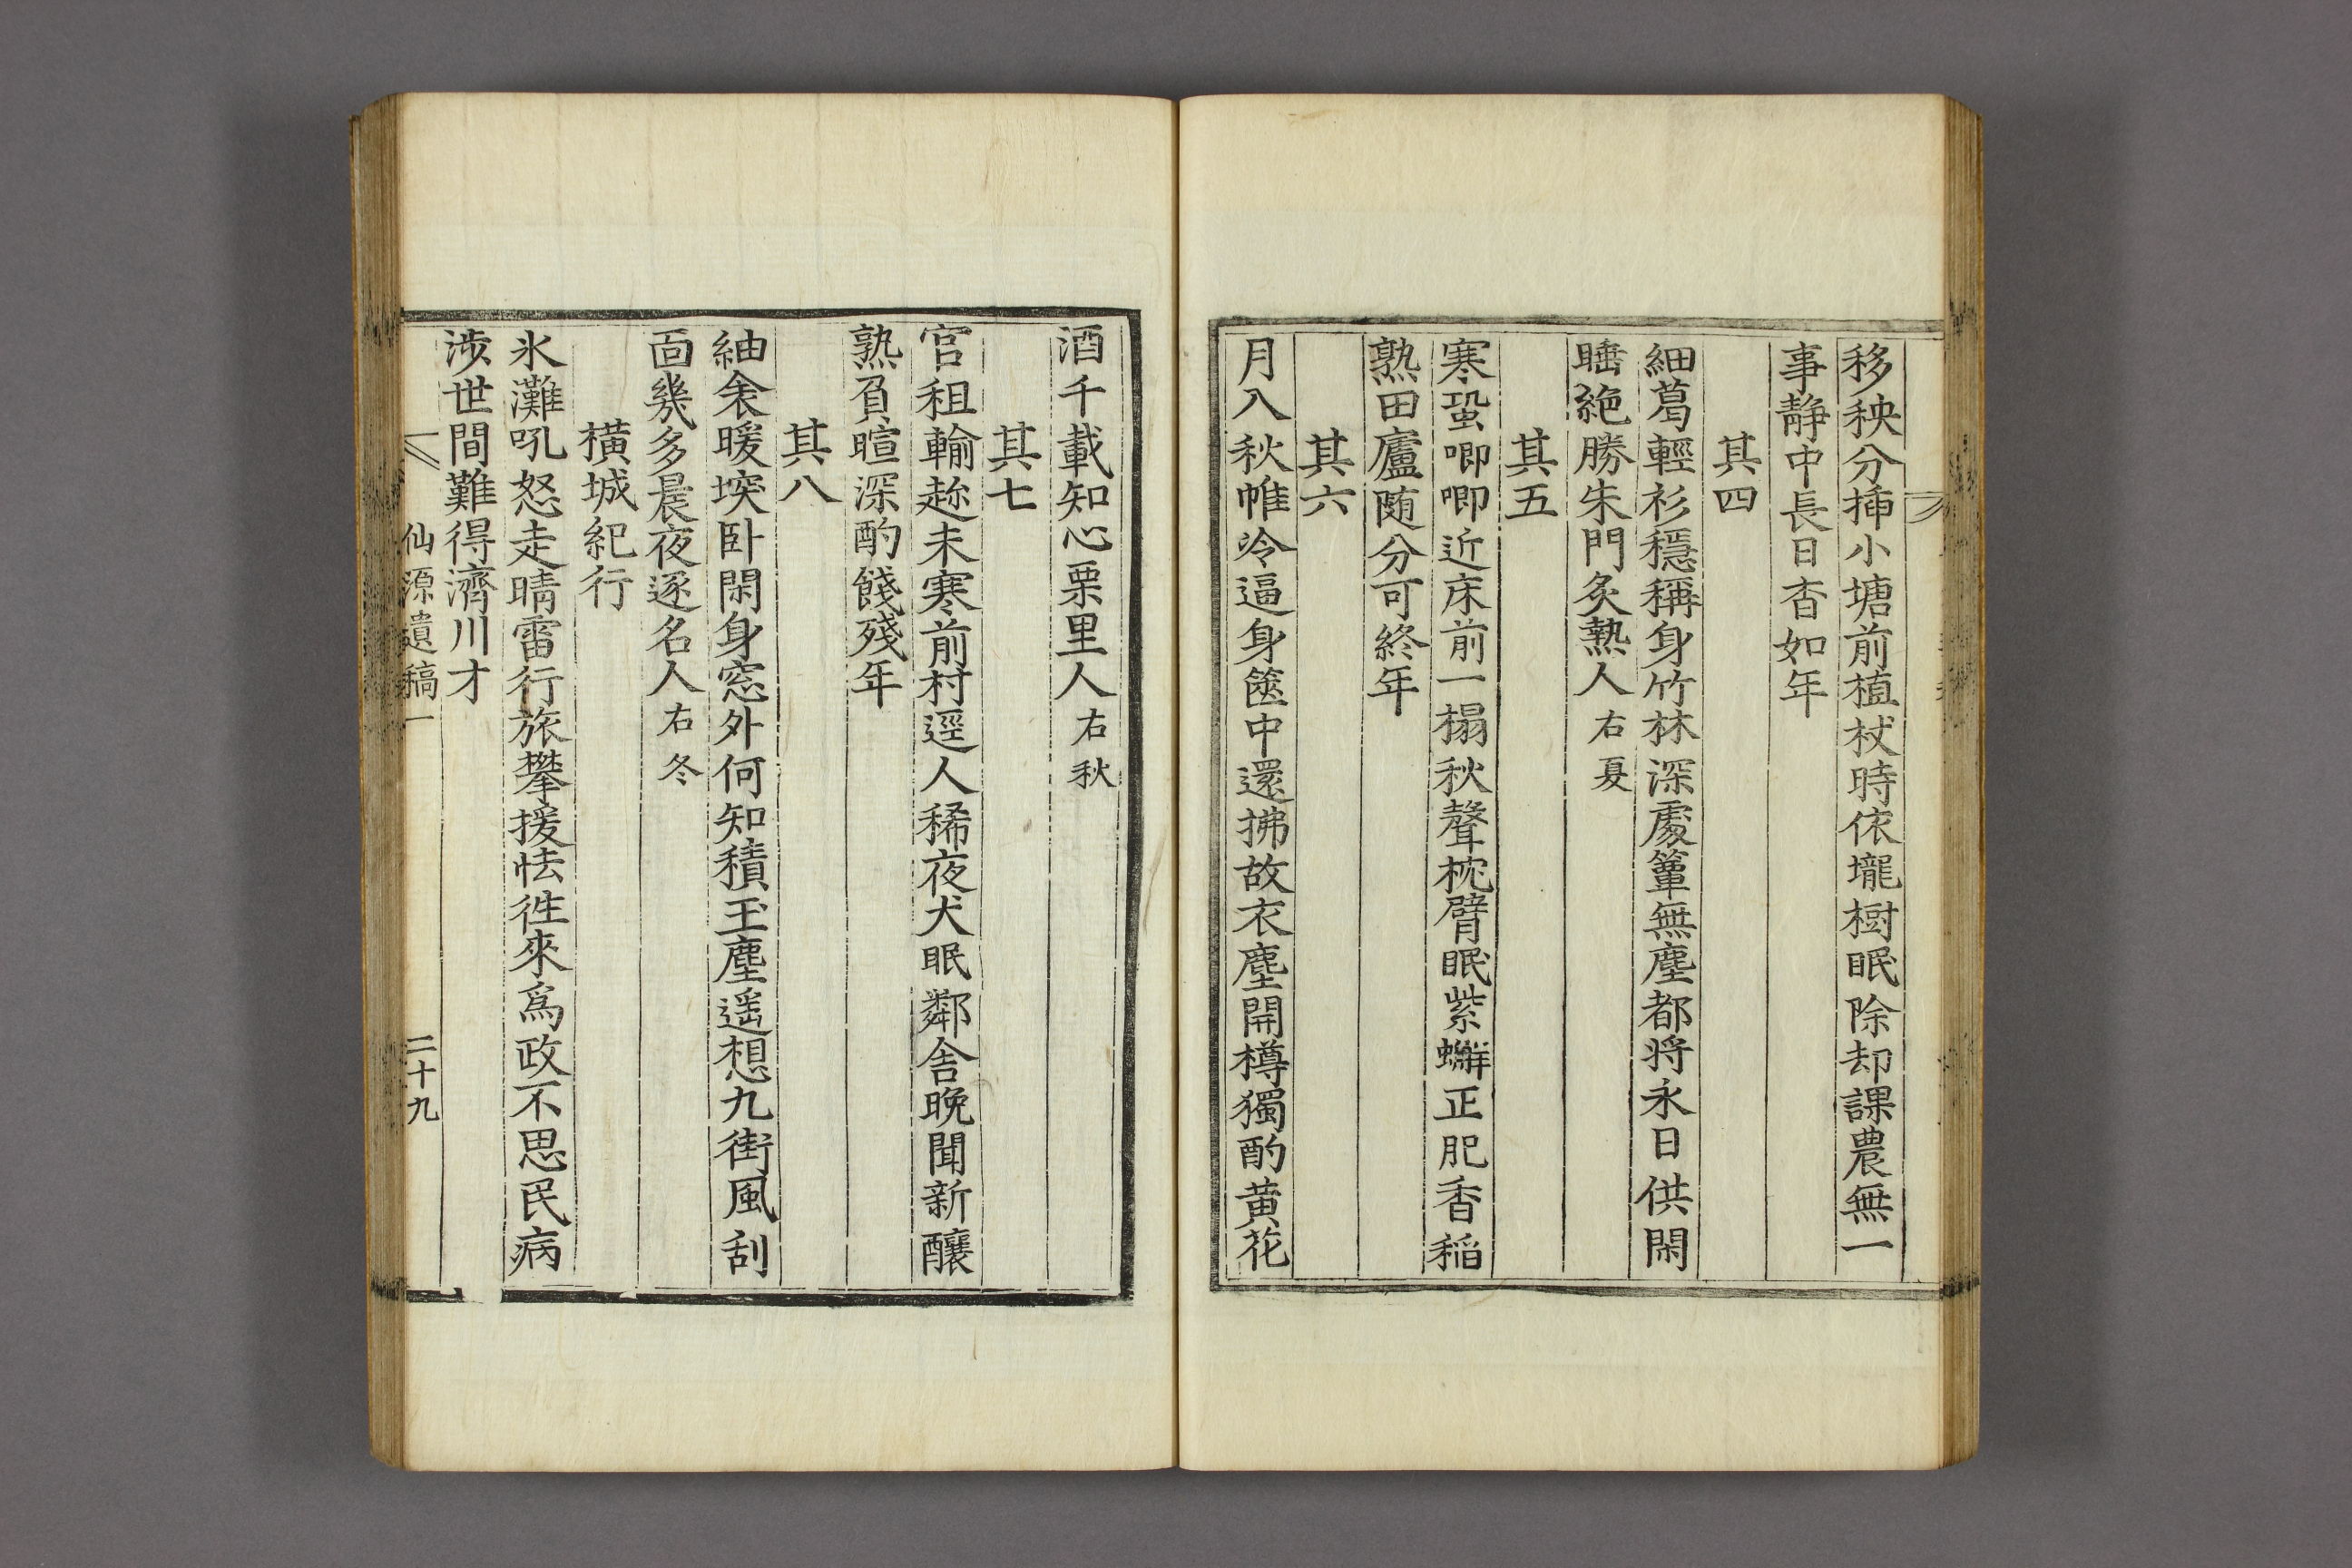 移秧分揷小塘前植杖時依壠樹眠除却課農無一
事靜中長日杳如年
其四
細葛輕衫穩稱身竹林深處簟無塵都將永日供閑
睡絶勝朱門炙熱人右夏
其五
寒蛩喞喞近床前一榻秋聲枕臂眠紫蠏正肥香稻
熟田廬随分可終年
其六
月入秋帷冷逼身篋中還拂故衣塵開樽獨酌黄花
酒千載知心栗里人右秋
其七
官租輸趂未寒前村逕人稀夜犬眠鄰舎晩聞新釀
熟負暄深酌餞殘年
其八
紬衾暖堗卧閑身窓外何知積玉塵遥想九街風刮
面幾多晨夜逐名人右冬
橫城紀行
氷灘吼怒走晴雷行旅攀援怯徃來爲政不思民病
涉世間難得濟川才
仙源遺稿一
二十九